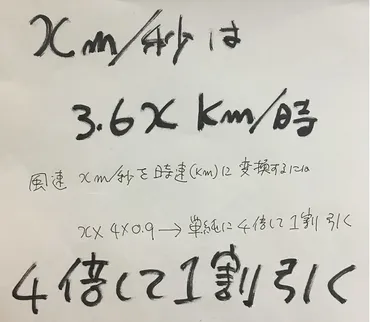 xm/秒は
3.6x km/時
風速 xm/秒を時速(km)に変換するには
x×4×0.9→単純に4倍して1割引く
4倍して1割引く